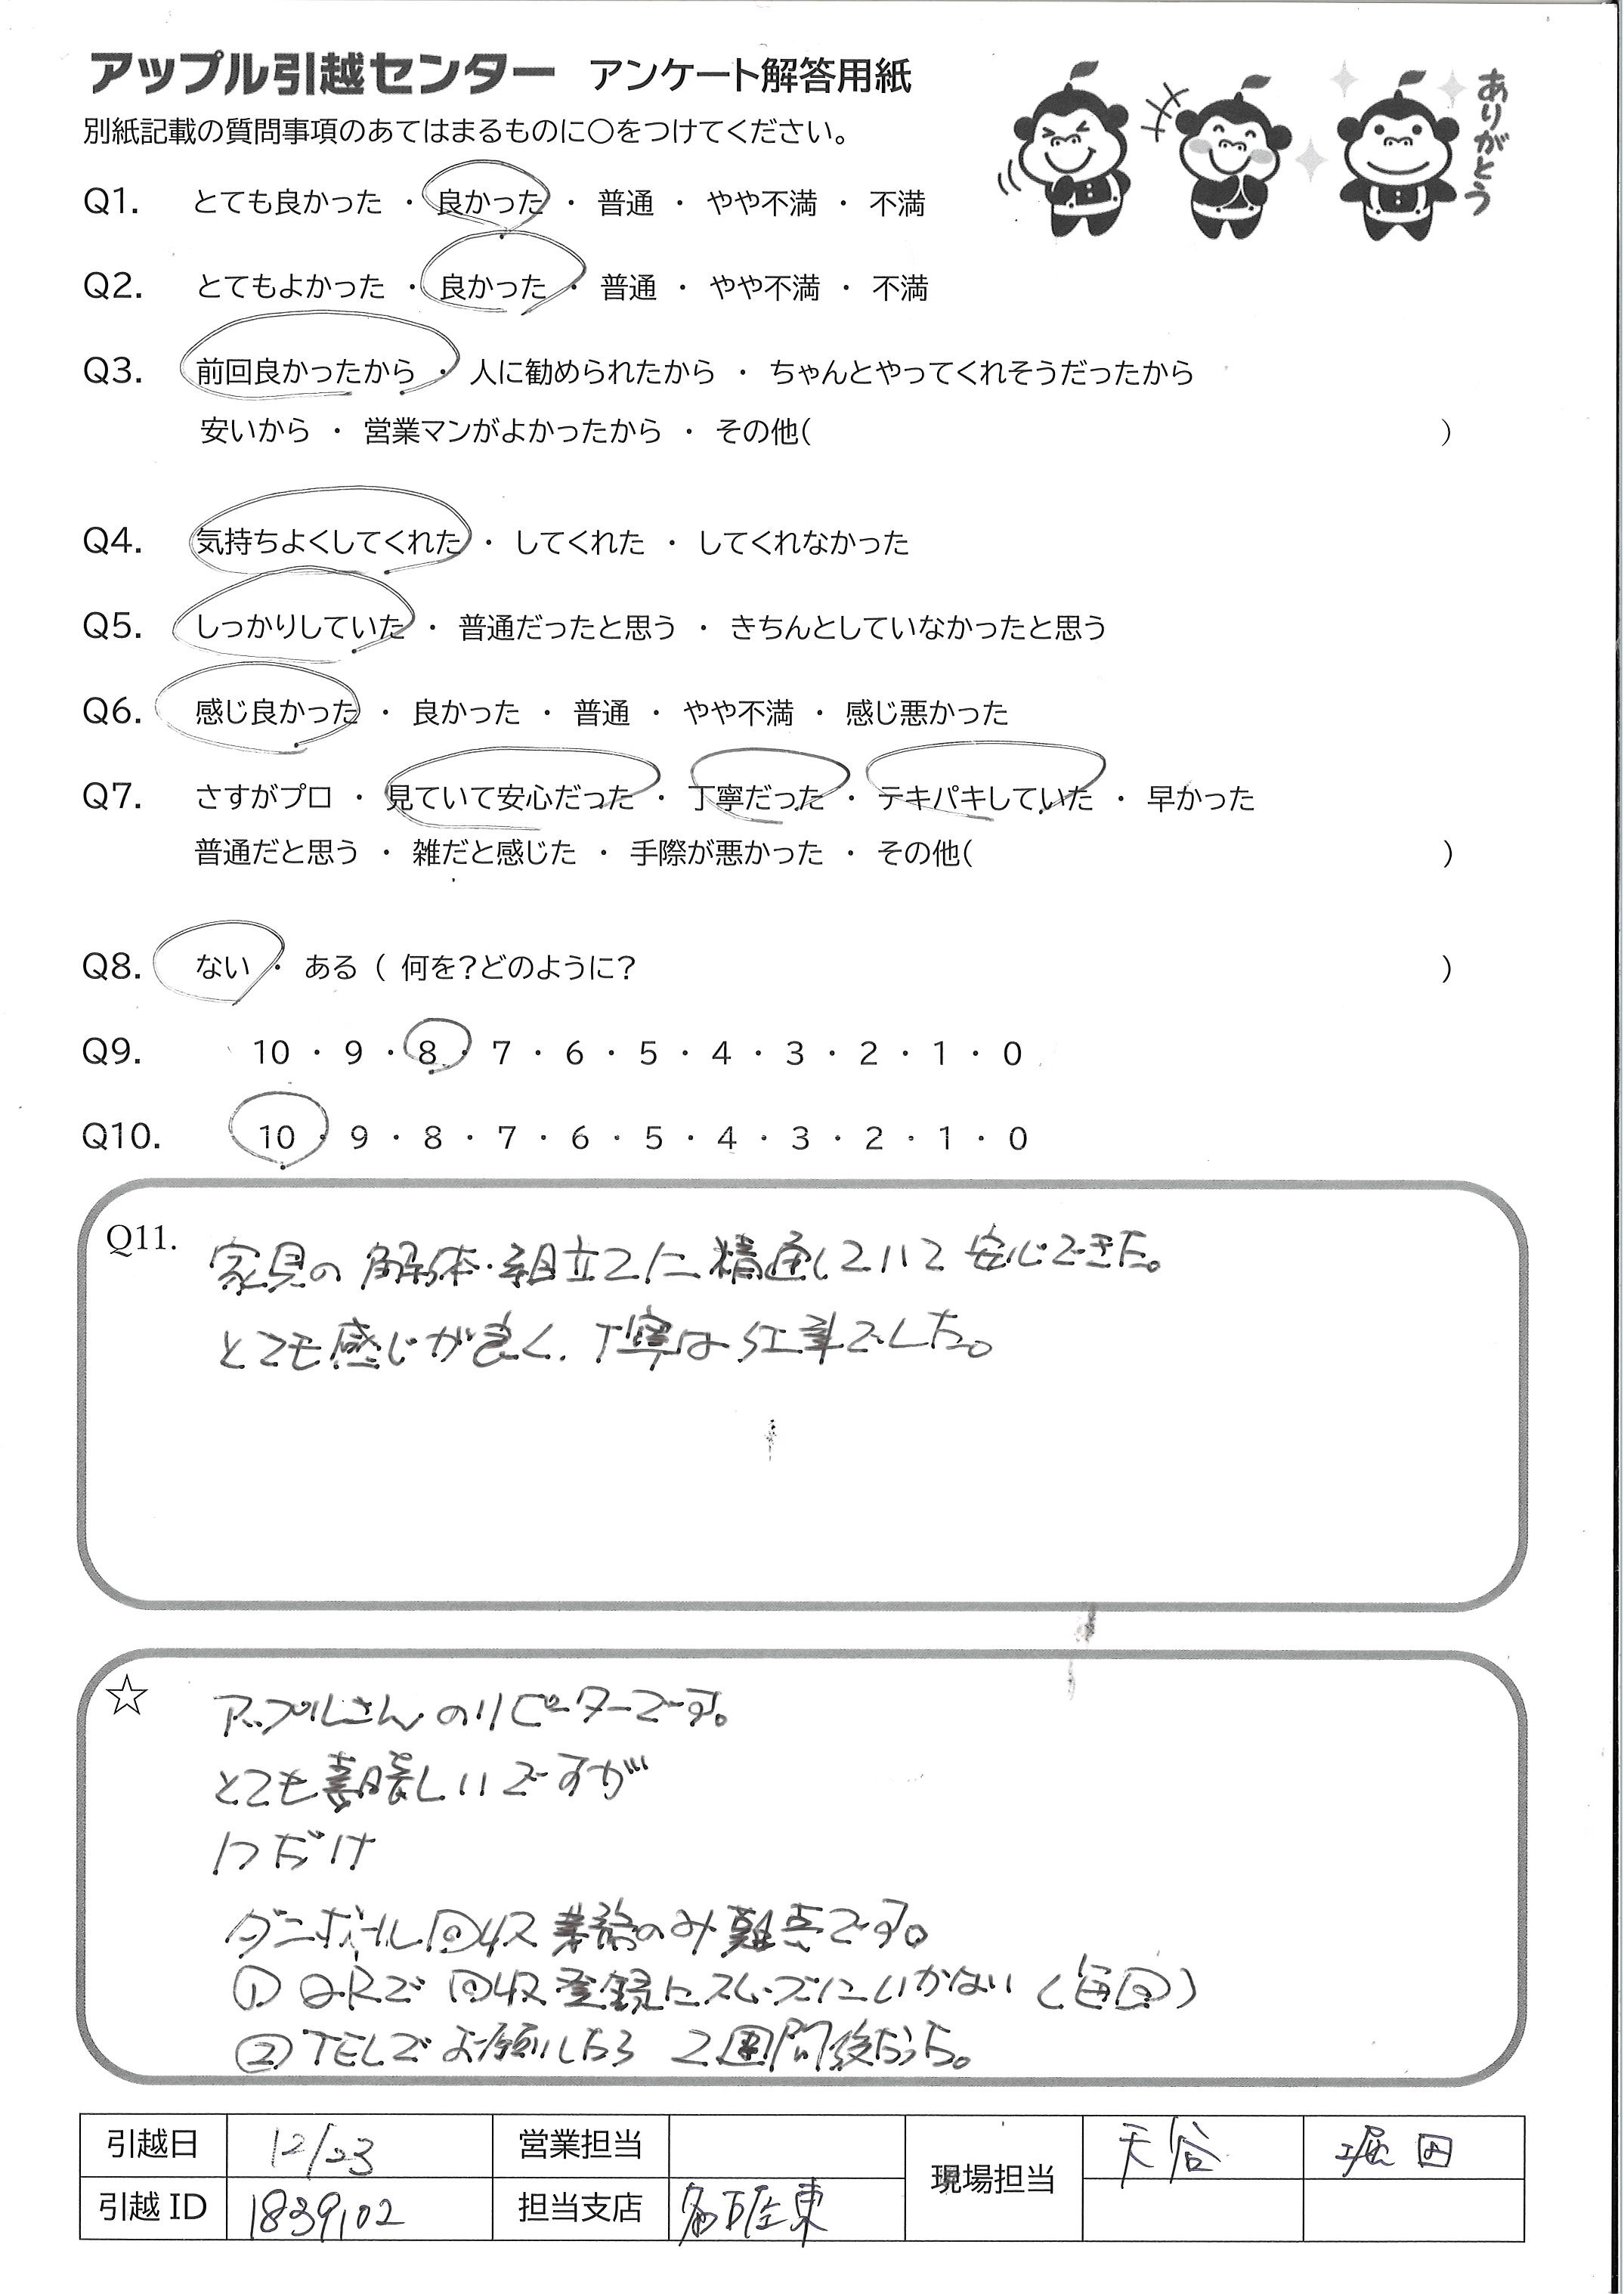 アップル引越センター アンケート解答用紙
ありがとう
別紙記載の質問事項のあてはまるものに〇をつけてください。
Q1. とても良かった ・ 良かった ・ 普通 ・ やや不満 ・ 不満
Q2. とてもよかった ・ 良かった ・ 普通 ・ やや不満 ・ 不満
Q3. 前回良かったから ・ 人に勧められたから ・ ちゃんとやってくれそうだったから
安いから ・ 営業マンがよかったから ・ その他( )
Q4. 気持ちよくしてくれた ・ してくれた ・ してくれなかった
Q5. しっかりしていた ・ 普通だったと思う ・ きちんとしていなかったと思う
Q6. 感じ良かった ・ 良かった ・ 普通 ・ やや不満 ・ 感じ悪かった
Q7. さすがプロ ・ 見ていて安心だった ・ 丁寧だった ・ テキパキしていた ・ 早かった
普通だと思う ・ 雑だと感じた ・ 手際が悪かった ・ その他( )
Q8. ない ・ ある ( 何を？どのように？ )
Q9. 10 ・ 9 ・ 8 ・ 7 ・ 6 ・ 5 ・ 4 ・ 3 ・ 2 ・ 1 ・ 0
Q10. 10 ・ 9 ・ 8 ・ 7 ・ 6 ・ 5 ・ 4 ・ 3 ・ 2 ・ 1 ・ 0
Q11. 家具の解体・組立てに精通していて安心できた。
とても感じが良く、丁寧な仕事でした。
☆ アップルさんのリピーターです。
とても素晴しいですが
1つだけ
ダンボール回収業務のみ難点です。
① QRで回収登録にスムーズにいかない（毎回）
② TELでお願いしたら 2週間後だった。
引越日 12/23 営業担当 現場担当 天谷 堀田
引越ID 1839102 担当支店 名古屋東